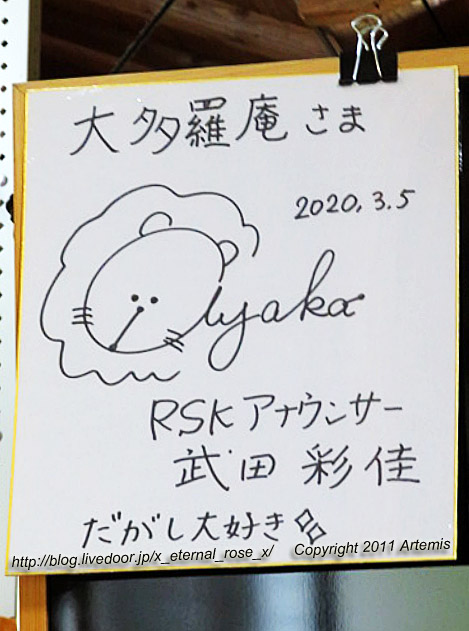 大多羅庵さま
2020.3.5
Ayaka
RSKアナウンサー
武田彩佳
だがし大好き
http://blog.livedoor.jp/x_eternal_rose_x/ Copyright 2011 Artemis